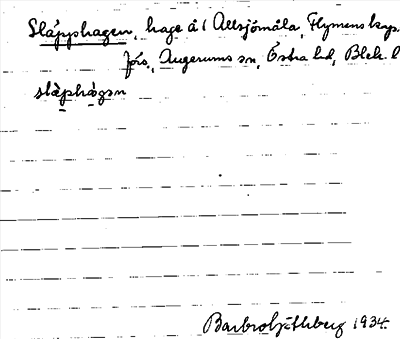 Släpphagen, hage å 1 Allsjömåla, Flymens kaps.
förs., Augerums sn, Östra hd, Blek. l
släphagen
Barbro 1934.